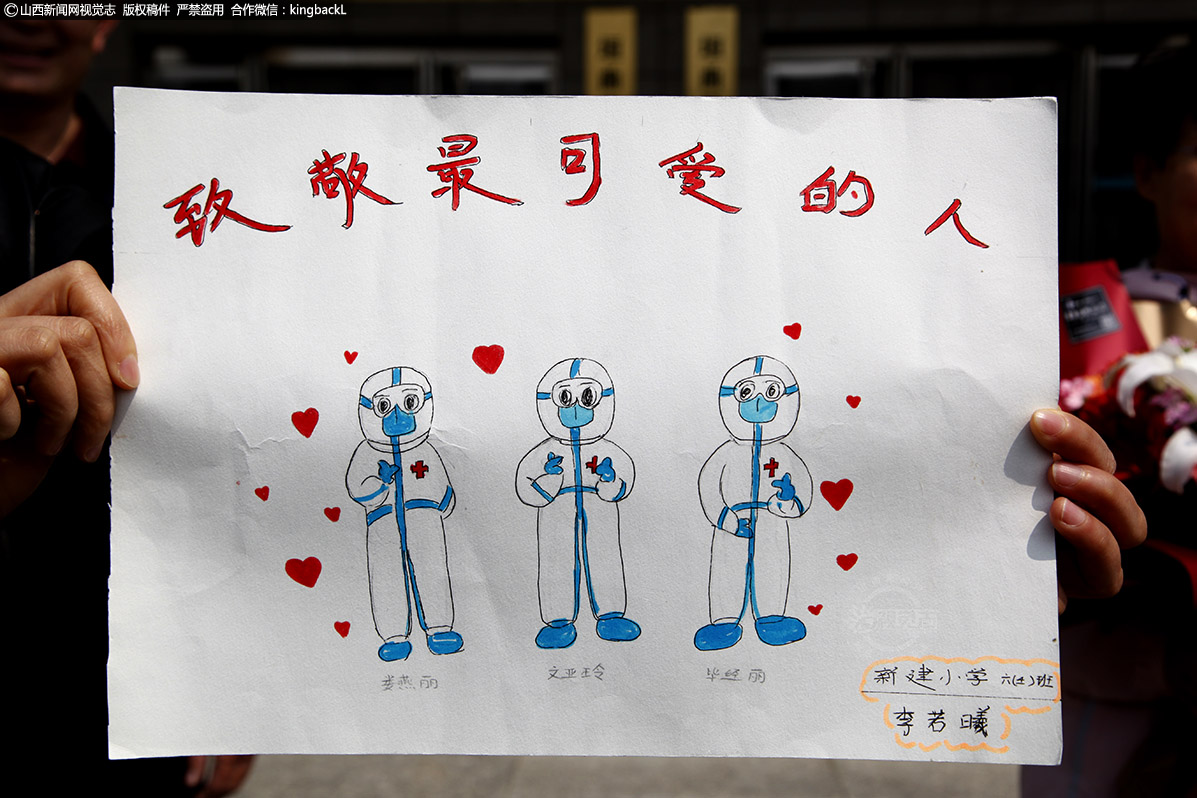 ©山西新闻网视觉志 版权稿件 严禁盗用 合作微信：kingbackL
致敬最可爱的人
娄燕丽 文亚玲 毕经丽
新建小学 六(2)班
李若曦